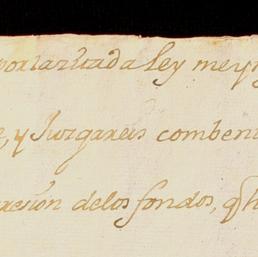 por la citada Ley me y
, y Juzgareis combeni
acion delos fondos, q̃ h